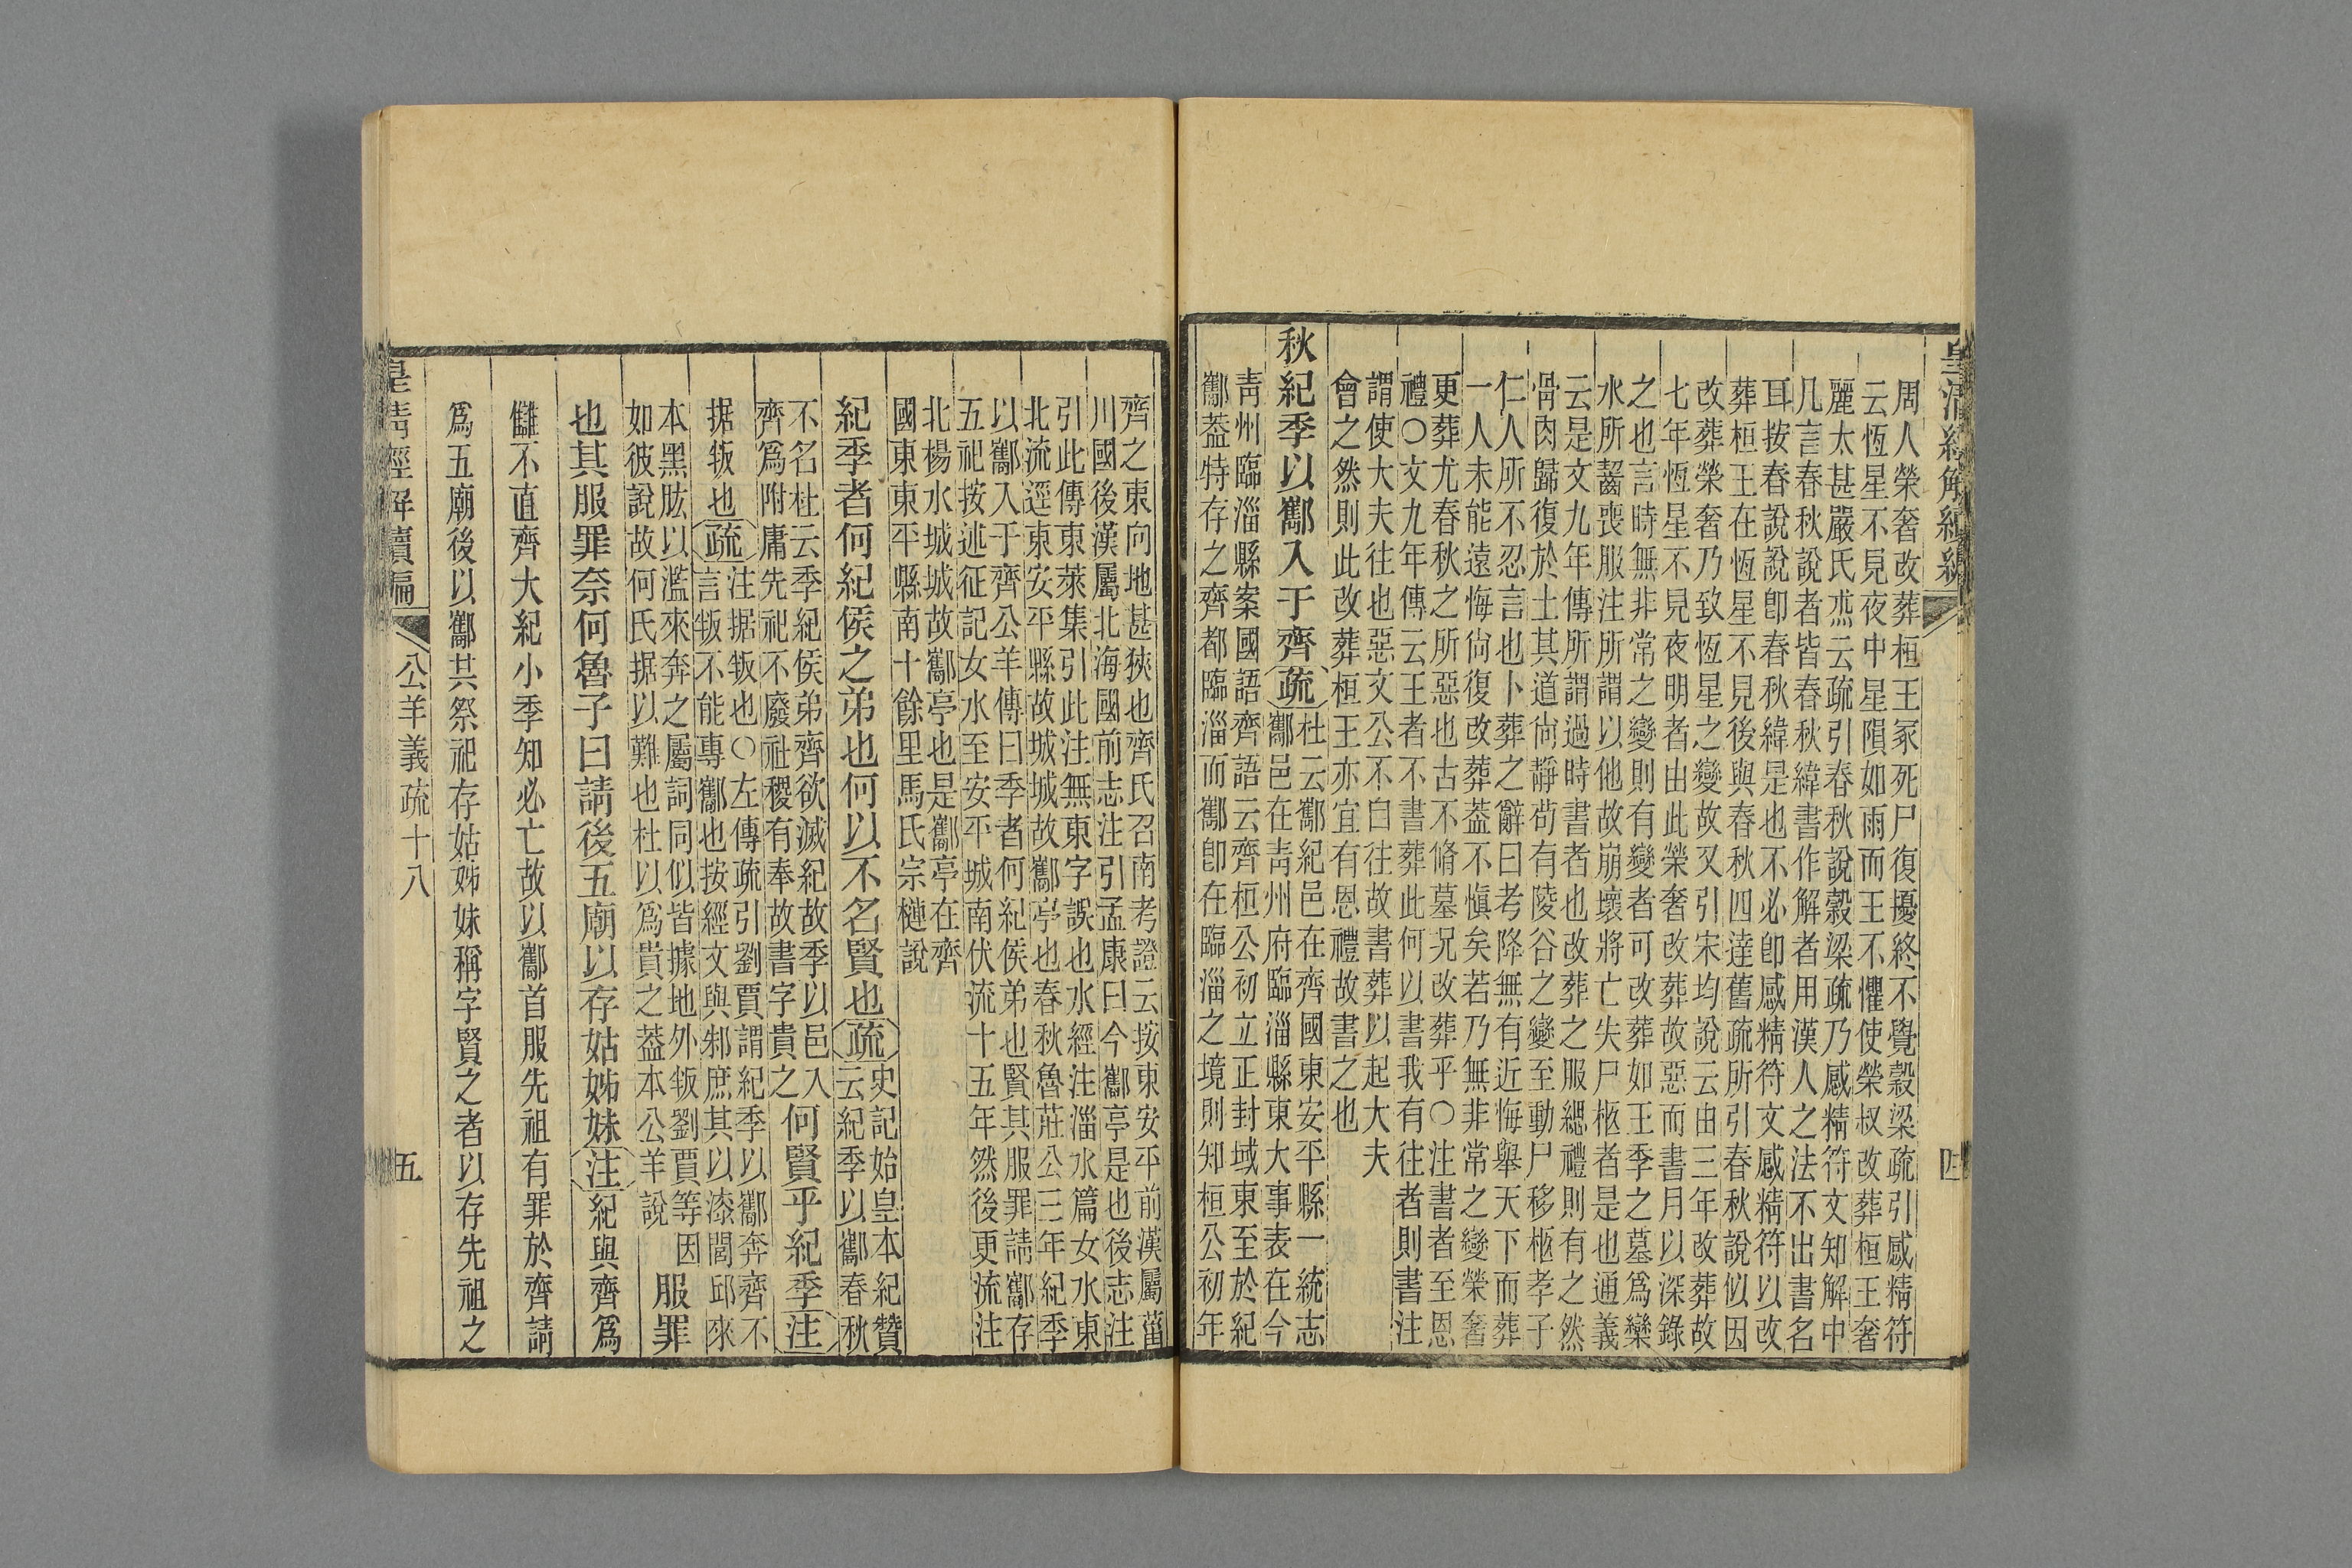 皇清經解續編
周人榮奢改葬桓王冢死尸復擾終不覺穀梁疏引感精符
云恆星不見夜中星隕如雨而王不懼使榮叔改葬桓王奢
麗太甚嚴氏烝云疏引春秋說穀梁疏乃感精符文知解中
几言春秋說者皆春秋緯書作解者用漢人之法不出書名
耳按春說說卽春秋緯是也不必卽感精符文感精符以改
葬桓王在恆星不見後與春秋四達舊疏所引春秋說似因
改葬榮奢乃致恆星之變故又引宋均說云由三年改葬故
七年恆星不見夜明者由此榮奢改葬故惡而書月以深錄
之也言時無非常之變則有變者可改葬如王季之墓爲欒
水所齧喪服注所謂以他故崩壞將亡失尸柩者是也通義
云是文九年傳所謂過時書者也改葬之服緦禮則有之然
骨肉歸復於土其道尙靜苟有陵谷之變至動尸移柩孝子
仁人所不忍言也卜葬之辭曰考降無有近悔舉天下而葬
一人未能遠悔尙復改葬葢不愼矣若乃無非常之變榮奢
更葬尤春秋之所惡也古不脩墓況改葬乎○注書者至恩
禮○文九年傳云王者不書葬此何以書我有往者則書注
謂使大夫往也惡文公不自往故書葬以起大夫
會之然則此改葬桓王亦宜有恩禮故書之也
秋紀季以酅入于齊疏杜云酅紀邑在齊國東安平縣一統志
酅邑在靑州府臨淄縣東大事表在今
靑州臨淄縣案國語齊語云齊桓公初立正封域東至於紀
酅葢特存之齊都臨淄而酅卽在臨淄之境則知桓公初年
四
齊之東向地甚狹也齊氏召南考證云按東安平前漢屬菑
川國後漢屬北海國前志注引孟康曰今酅亭是也後志注
引此傳東萊集引此注無東字誤也水經注淄水篇女水東
北流逕東安平縣故城城故酅亭也春秋魯莊公三年紀季
以酅入于齊公羊傳曰季者何紀侯弟也賢其服罪請酅存
五祀按述征記女水至安平城南伏流十五年然後更流注
北楊水城城故酅亭也是酅亭在齊
國東東平縣南十餘里馬氏宗槤說
紀季者何紀侯之弟也何以不名賢也疏史記始皇本紀贊
云紀季以酅春秋
不名杜云季紀侯弟齊欲滅紀故季以邑入
齊爲附庸先祀不廢社稷有奉故書字貴之何賢乎紀季注
据叛也疏注据叛也○左傳疏引劉賈謂紀季以酅奔齊不
言叛不能專酅也按經文與邾庶其以漆閭邱來
本黑肱以濫來奔之屬詞同似皆據地外叛劉賈等因
如彼說故何氏据以難也杜以爲貴之葢本公羊說服罪
也其服罪奈何魯子曰請後五廟以存姑姊妹注紀與齊爲
讎不直齊大紀小季知必亡故以酅首服先祖有罪於齊請
爲五廟後以酅共祭祀存姑姊妹稱字賢之者以存先祖之
皇淸經解續編
公羊義疏十八
五